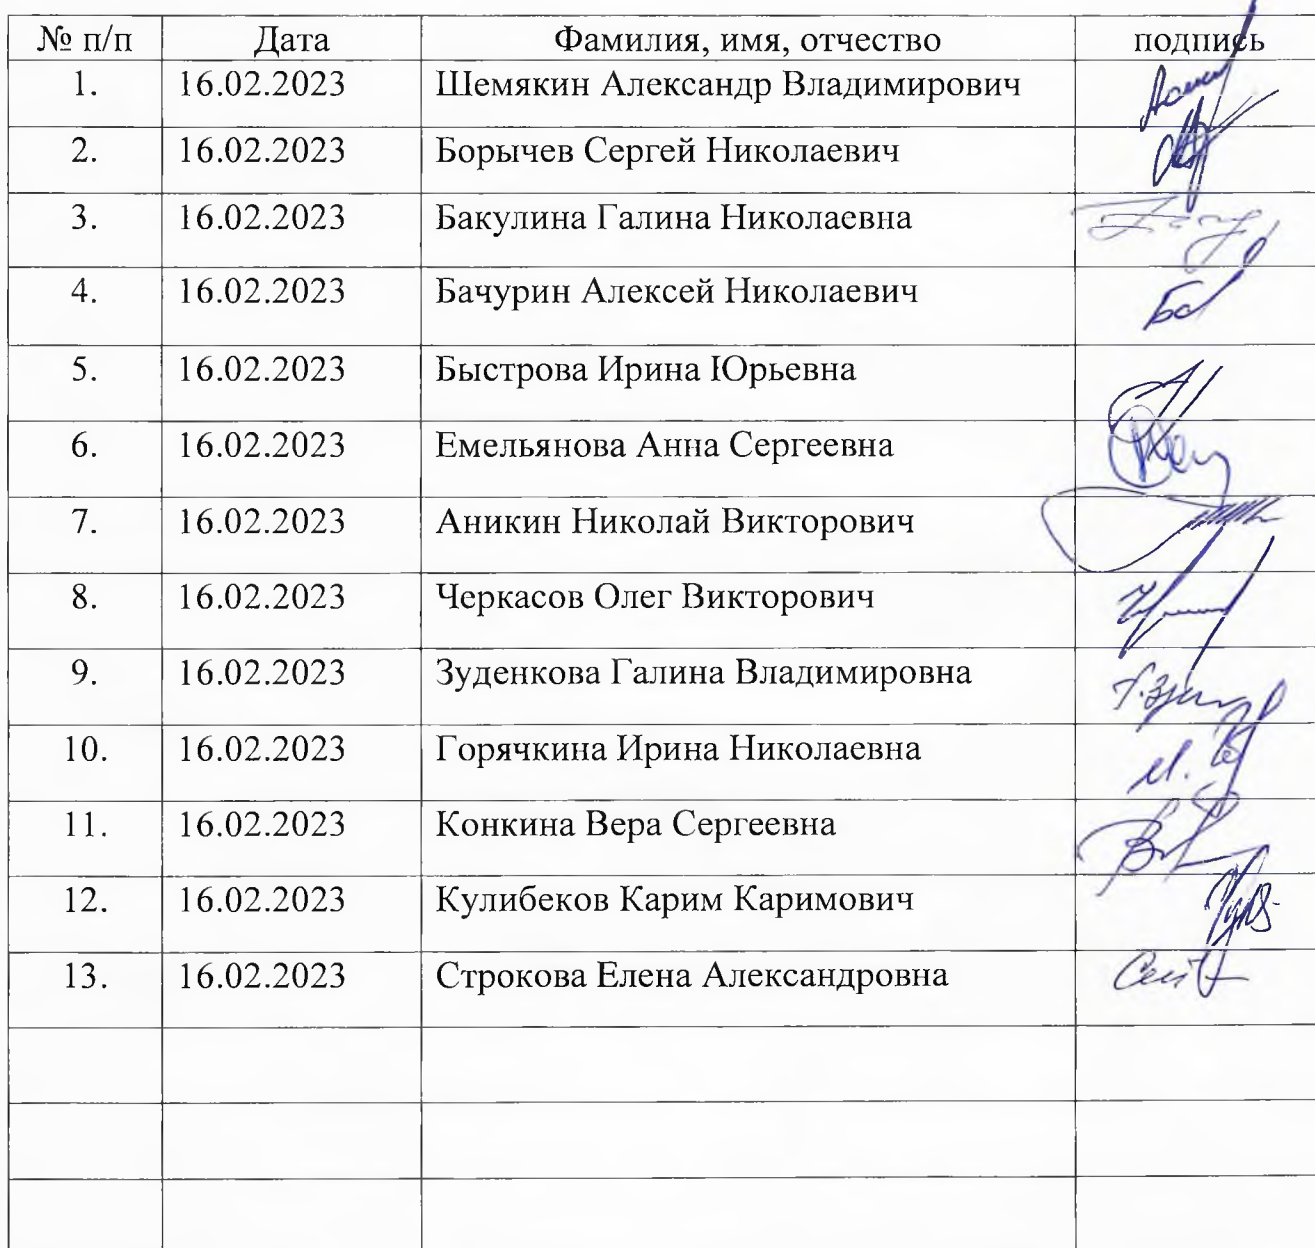 № п/п Дата Фамилия, имя, отчество подпись
1. 16.02.2023 Шемякин Александр Владимирович
2. 16.02.2023 Борычев Сергей Николаевич
3. 16.02.2023 Бакулина Галина Николаевна
4. 16.02.2023 Бачурин Алексей Николаевич
5. 16.02.2023 Быстрова Ирина Юрьевна
6. 16.02.2023 Емельянова Анна Сергеевна
7. 16.02.2023 Аникин Николай Викторович
8. 16.02.2023 Черкасов Олег Викторович
9. 16.02.2023 Зуденкова Галина Владимировна
10. 16.02.2023 Горячкина Ирина Николаевна
11. 16.02.2023 Конкина Вера Сергеевна
12. 16.02.2023 Кулибеков Карим Каримович
13. 16.02.2023 Строкова Елена Александровна